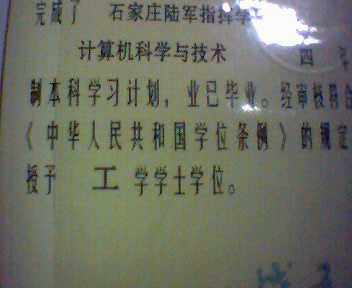 完成了 石家庄陆军指挥学
计算机科学与技术 四 年
制本科学习计划，业已毕业。经审核符合
《中华人民共和国学位条例》的规定
授予 工 学学士学位。